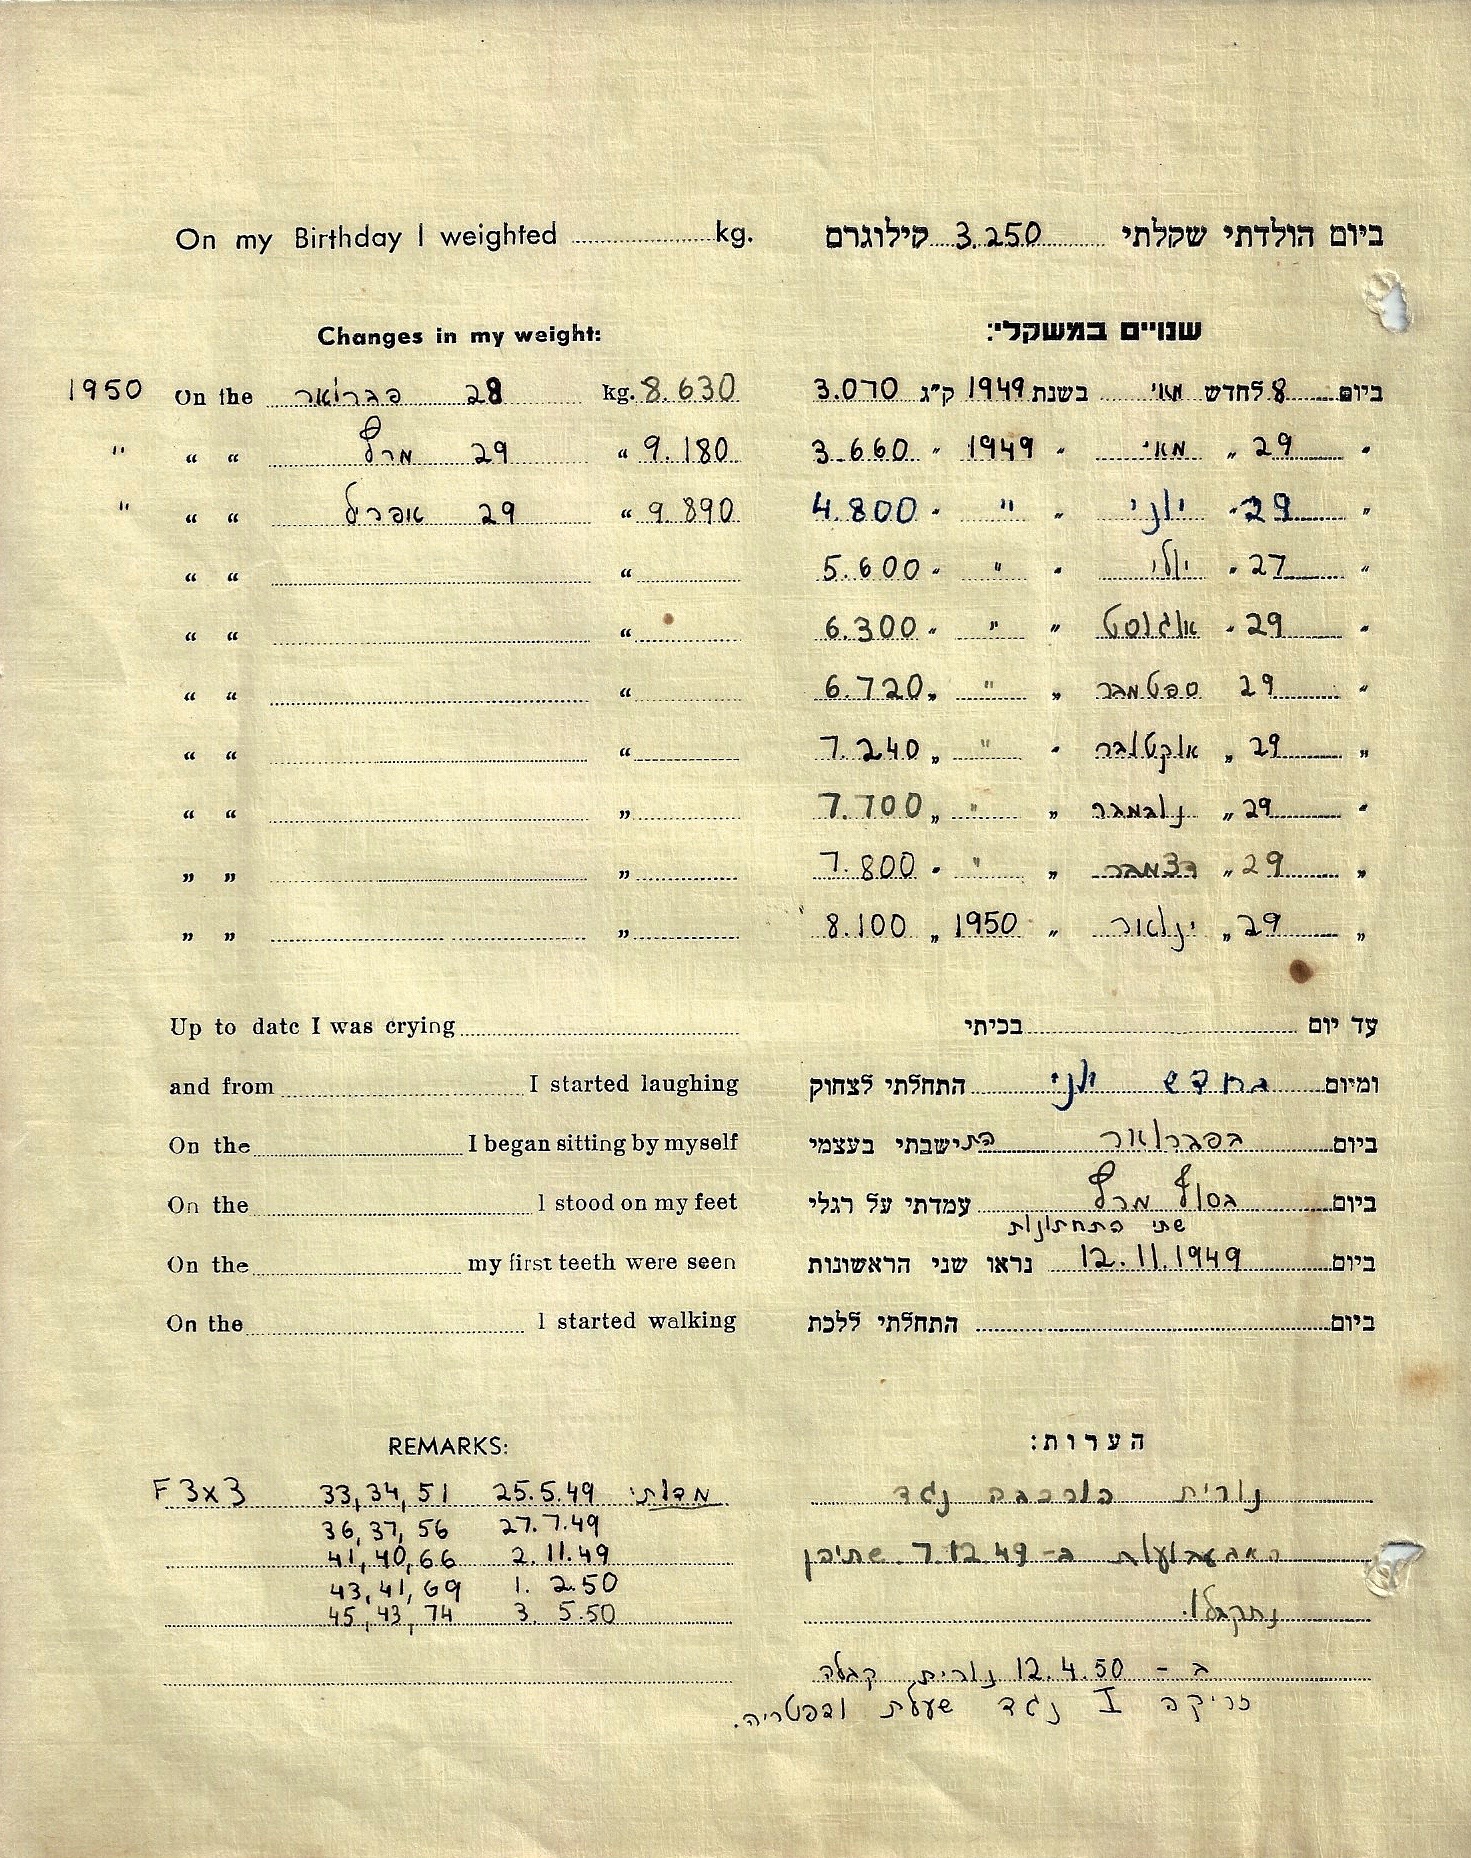 On my Birthday I weighted ............ kg.
ביום הולדתי שקלתי 3.250 קילוגרם
Changes in my weight:
שנויים במשקלי:
1950 On the 28 פברואר kg. 8.630
ביום 8 לחדש מאי בשנת 1949 ק"ג 3.070
" “ “ 29 מרץ “ 9.180
" 29 „ מאי " 1949 " 3.660
" “ “ 29 אפריל “ 9.890
" 29 " יוני „ " " 4.800
“ “ “
" 27 " יולי " " " 5.600
“ “ “
" 29 " אוגוסט „ " " 6.300
“ “ “
" 29 ספטמבר „ " „ 6.720
“ “ “
„ 29 „ אוקטובר " " „ 7.240
“ “ „
" 29 „ נובמבר „ " „ 7.700
„ „ „
„ 29 „ דצמבר „ " " 7.800
„ „ „
„ 29 „ ינואר „ 1950 „ 8.100
Up to date I was crying
עד יום ............ בכיתי
and from ............ I started laughing
ומיום בחדש יוני התחלתי לצחוק
On the ............ I began sitting by myself
ביום בפברואר התישבתי בעצמי
On the ............ I stood on my feet
ביום בסוף מרץ עמדתי על רגלי
שתי התחתונות
On the ............ my first teeth were seen
ביום 12.11.1949 נראו שני הראשונות
On the ............ I started walking
ביום ............ התחלתי ללכת
REMARKS:
הערות:
מדותי: 25.5.49 33,34,51 F 3x3
27.7.49 36,37,56
2.11.49 41,40,66
1.2.50 43,41,69
3.5.50 45,43,74
נורית הורכבה נגד
האבעבועות ב-7.12.49. שתיהן
נתקבלו.
ב - 12.4.50 נורית קבלה
זריקה I נגד שעלת ודפטריה.